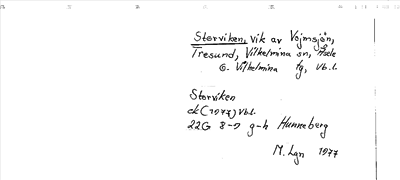 Storviken, vik av Vojmsjön,
Tresund, Vilhelmina sn, Åsele
G. Vilhelmina tg, Vb.l.
Storviken
ek (1977) Vb.l.
22G 8-9 g-h Hunneberg
M. Lgn 1977